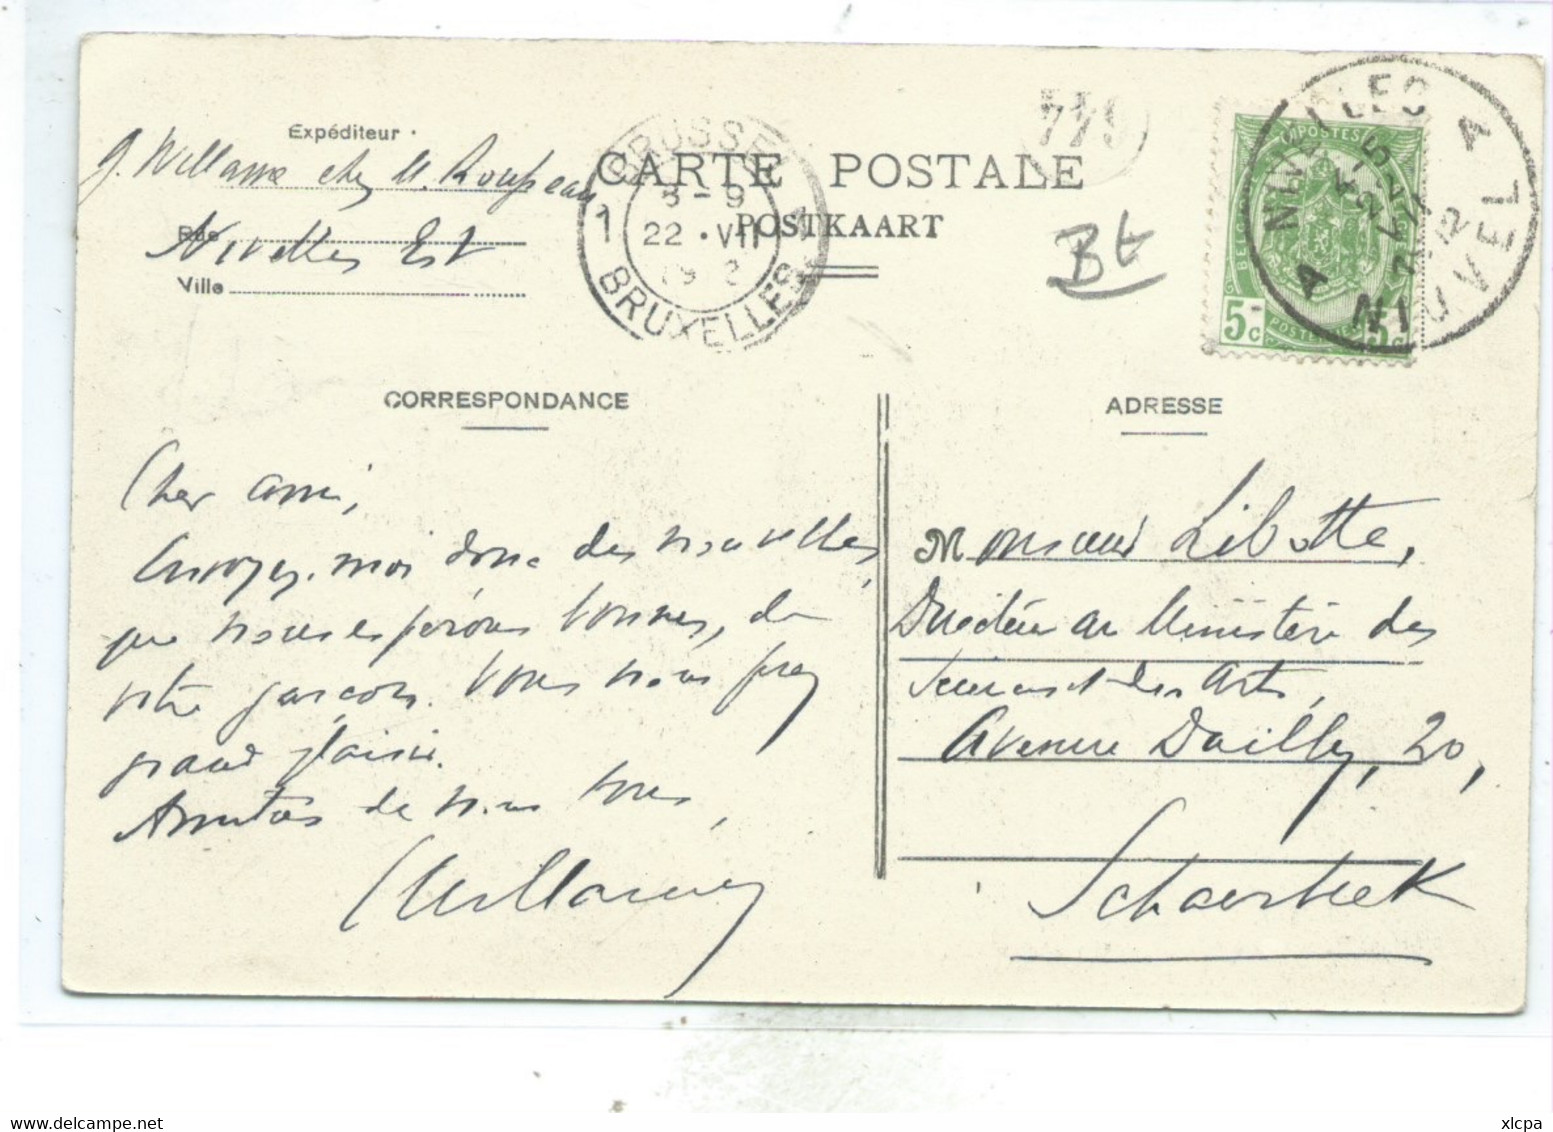 Expéditeur
G. Willame chez M. Roupeau
Rue
Nivelles Est
Ville
BRUSSEL 1
8-9
22 · VII
BRUXELLES
1
CARTE POSTALE
POSTKAART
779
Bt
NIVELLES
A
NIJVEL
A
POSTES
5c
5c
CORRESPONDANCE
ADRESSE
Cher ami,
Envoyez-moi donc des nouvelles,
que nous espérons bonnes, de
votre garçon. Vous nous ferez
grand plaisir.
Amitiés de nous tous,
GWillame
Monsieur Libotte,
Directeur au Ministère des
Sciences et des Arts,
Avenue Dailly, 20,
Schaerbeek
xlcpa